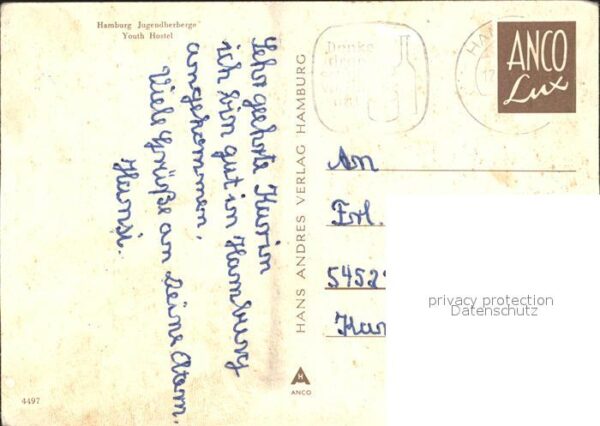 Hamburg Jugendherberge
Youth Hostel
Sehr geehrte Karin
ich bin gut in Hamburg
angekommen.
Viele Grüße an Deine
Hansi.
HANS ANDRES VERLAG HAMBURG
H
ANCO
4497
Denke
ANCO
Lux
An
Frl.
5452
privacy protection
Datenschutz